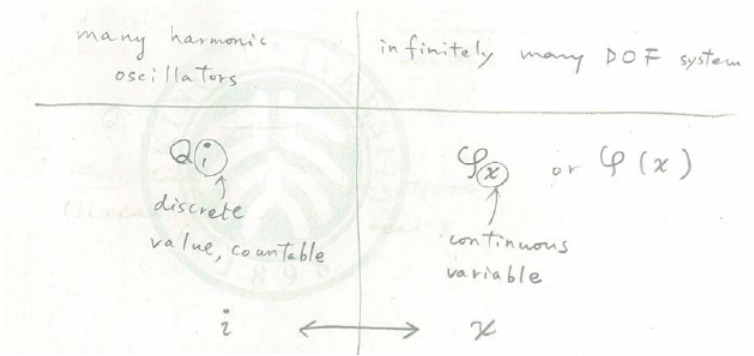 many harmonic oscillators
infinitely many DOF system
Qi
φx or φ(x)
discrete value, countable
continuous variable
i ↔ x
1898